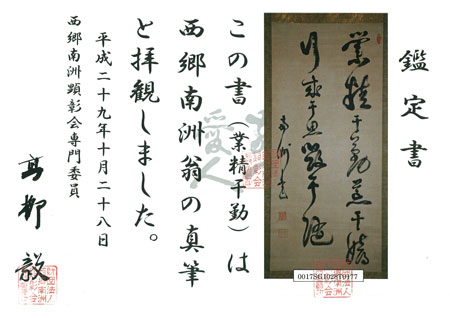 鑑定書
業精于勤荒于嬉
行成于思毀于随
南洲書
0017SG1028T0177
この書(業精于勤)は
西郷南洲翁の真筆
と拝観しました。
平成二十九年十月二十八日
西郷南洲顕彰会専門委員
高柳毅
愛人